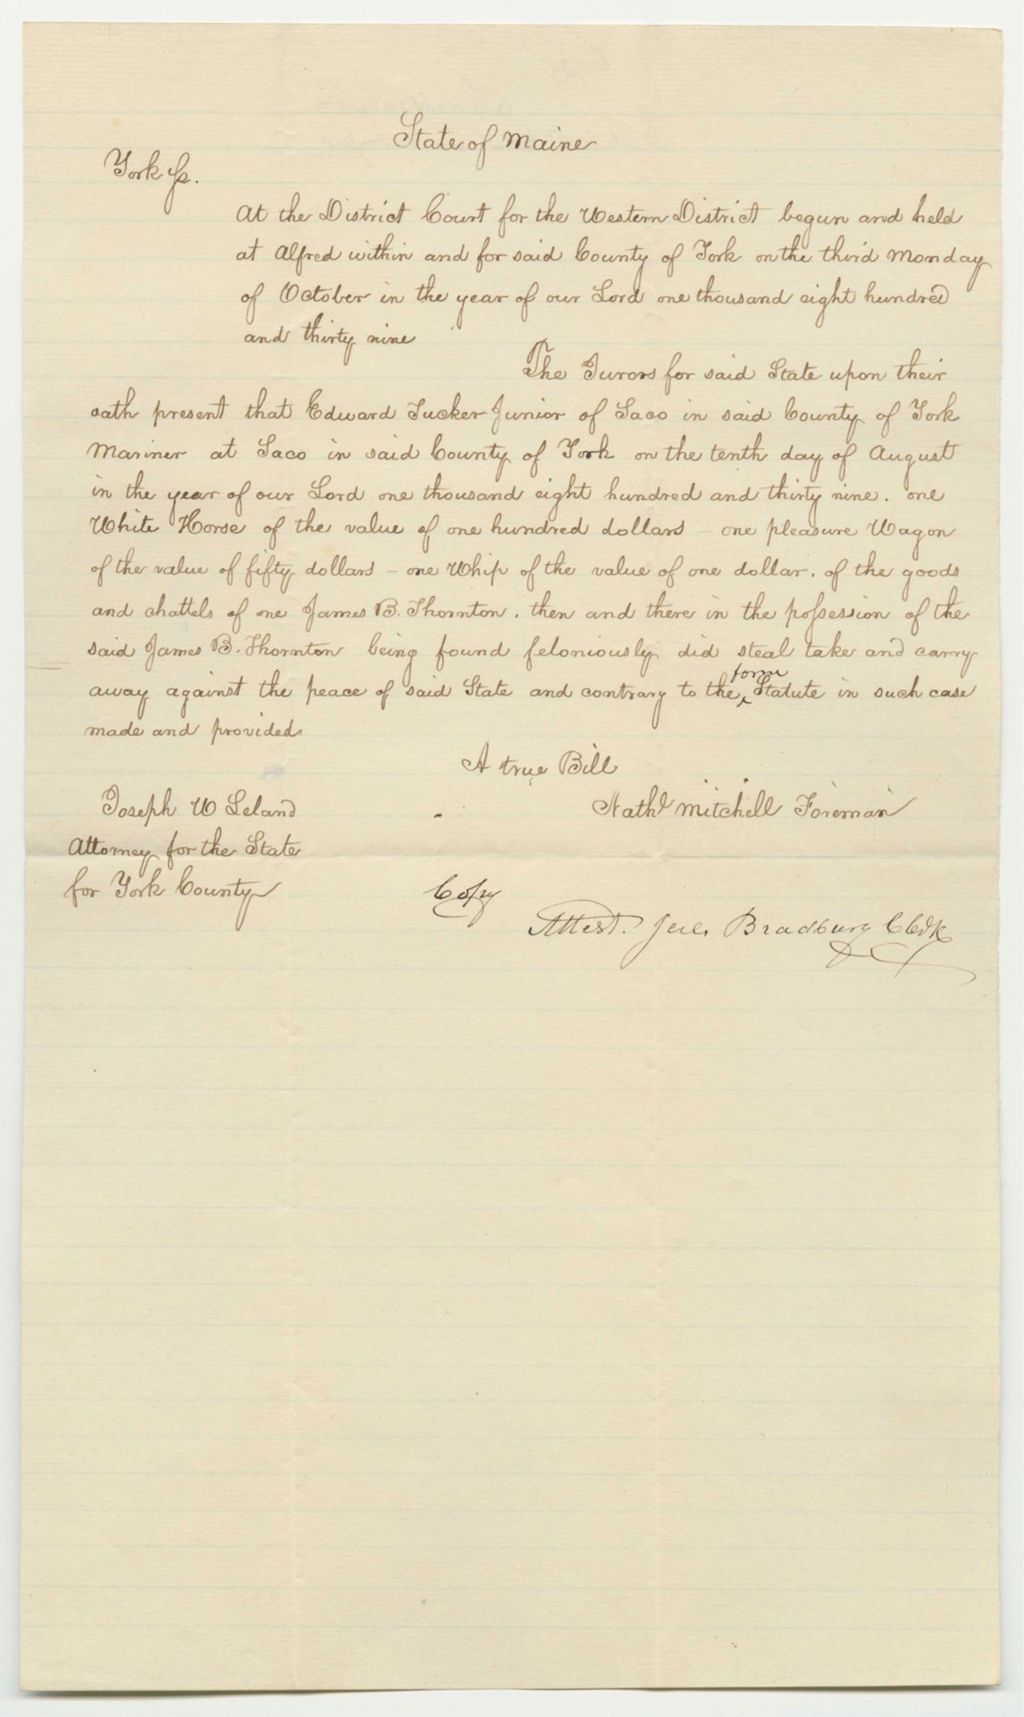 State of Maine
York ss.
At the District Court for the Western District begun and held
at Alfred within and for said County of York on the third Monday
of October in the year of our Lord one thousand eight hundred
and thirty nine
The Jurors for said State upon their
oath present that Edward Tucker Junior of Saco in said County of York
Mariner at Saco in said County of York on the tenth day of August
in the year of our Lord one thousand eight hundred and thirty nine. one
White Horse of the value of one hundred dollars - one pleasure Wagon
of the value of fifty dollars - one Whip of the value of one dollar. of the goods
and chattels of one James B. Thornton. then and there in the possession of the
said James B. Thornton being found feloniously did steal take and carry
away against the peace of said State and contrary to the form Statute in such case
made and provided
A true Bill
Joseph W Leland - Nathl Mitchell Foreman
Attorney for the State
for York County Copy
Attest. Jere. Bradbury Clerk